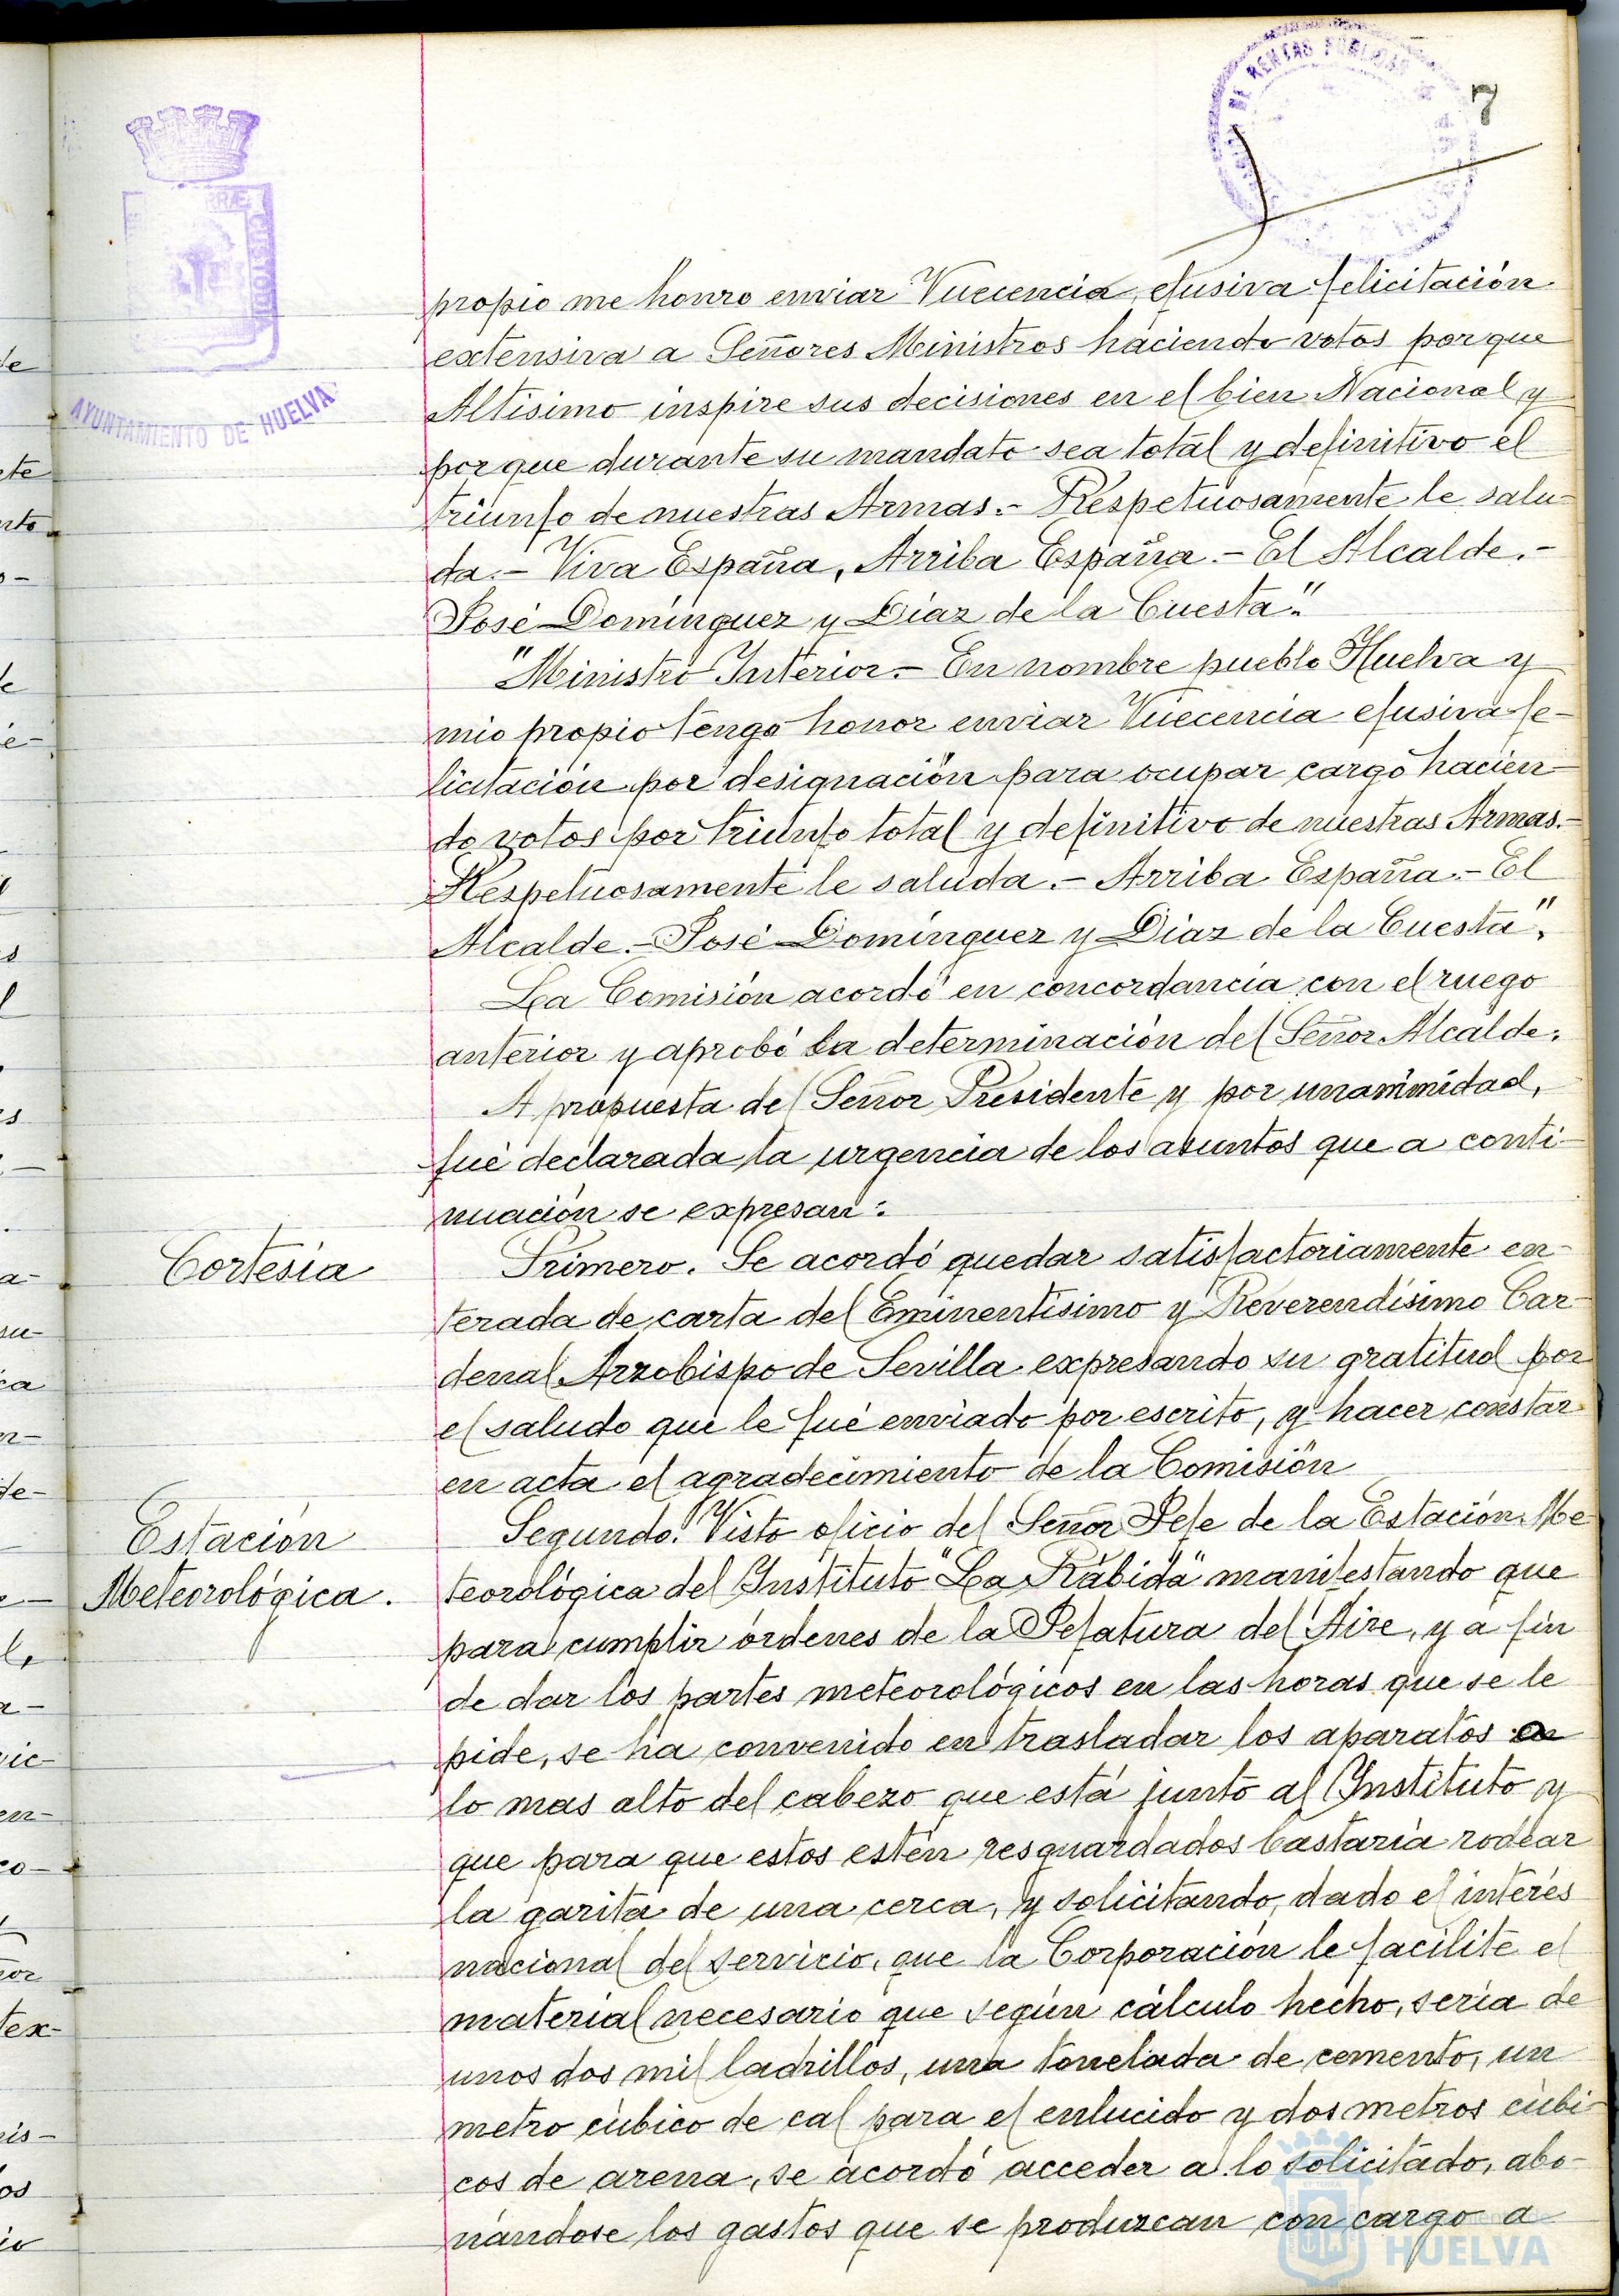 DE RENTAS PUBLICAS
7
AYUNTAMIENTO DE HUELVA
propio me honro enviar Vuecencia efusiva felicitación
extensiva a Señores Ministros haciendo votos porque
Altísimo inspire sus decisiones en el bien Nacional y
porque durante su mandato sea total y definitivo el
triunfo de nuestras Armas.- Respetuosamente le salu-
da.- Viva España, Arriba España.- El Alcalde.-
José Domínguez y Díaz de la Cuesta."
"Ministro Interior.- En nombre pueblo Huelva y
mio propio tengo honor enviar Vuecencia efusiva fe-
licitación por designación para ocupar cargo hacien-
do votos por triunfo total y definitivo de nuestras Armas.-
Respetuosamente le saluda.- Arriba España.- El
Alcalde.- José Domínguez y Díaz de la Cuesta".
La Comisión acordó en concordancia con el ruego
anterior y aprobó la determinación del Señor Alcalde.
A propuesta del Señor Presidente y por unanimidad,
fué declarada la urgencia de los asuntos que a conti-
nuación se expresan:
Cortesía
Primero. Se acordó quedar satisfactoriamente en-
terada de carta del Eminentísimo y Reverendísimo Car-
denal Arzobispo de Sevilla expresando su gratitud por
el saludo que le fué enviado por escrito, y hacer constar
en acta el agradecimiento de la Comisión
Estación
Meteorológica.
Segundo. Visto oficio del Señor Jefe de la Estación Me
teorológica del Instituto "La Rábida" manifestando que
para cumplir órdenes de la Jefatura del Aire, y a fin
de dar los partes meteorológicos en las horas que se le
pide, se ha convenido en trasladar los aparatos en
lo mas alto del cabezo que está junto al Instituto y
que para que estos estén resguardados bastaría rodear
la garita de una cerca, y solicitando, dado el interés
nacional del servicio, que la Corporación le facilite el
material necesario que según cálculo hecho, sería de
unos dos mil ladrillos, una tonelada de cemento, un
metro cúbico de cal para el enlucido y dos metros cúbi-
cos de arena, se acordó acceder a lo solicitado, abo-
nándose los gastos que se produzcan con cargo a
HUELVA